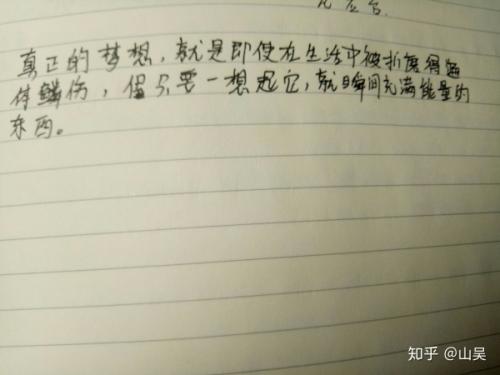 真正的梦想，就是即使在生活中被折磨得遍
体鳞伤，但只要一想起它，就瞬间充满能量的
东西。
知乎 @山吴